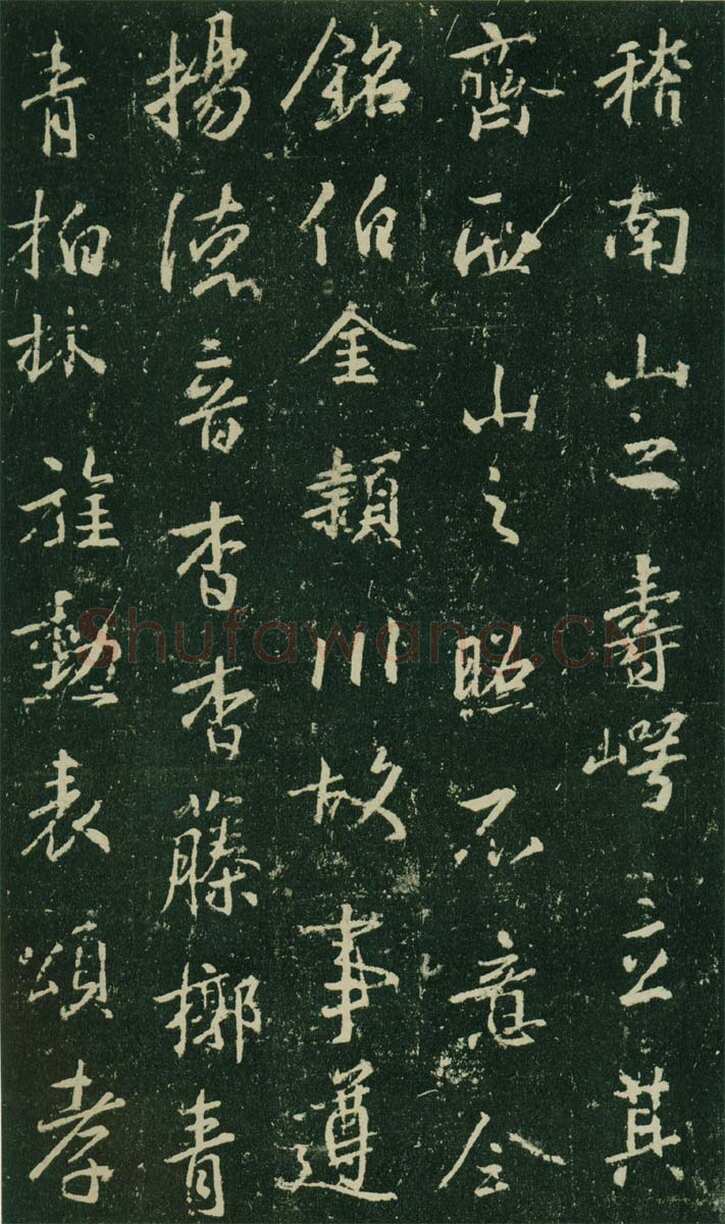 稽南山之壽崿立其
齊西山之照不意今
銘伯金穎川故事遵
揚德音杳杳藤槨青
青柏林旌勳表頌孝
Shufawang.CN